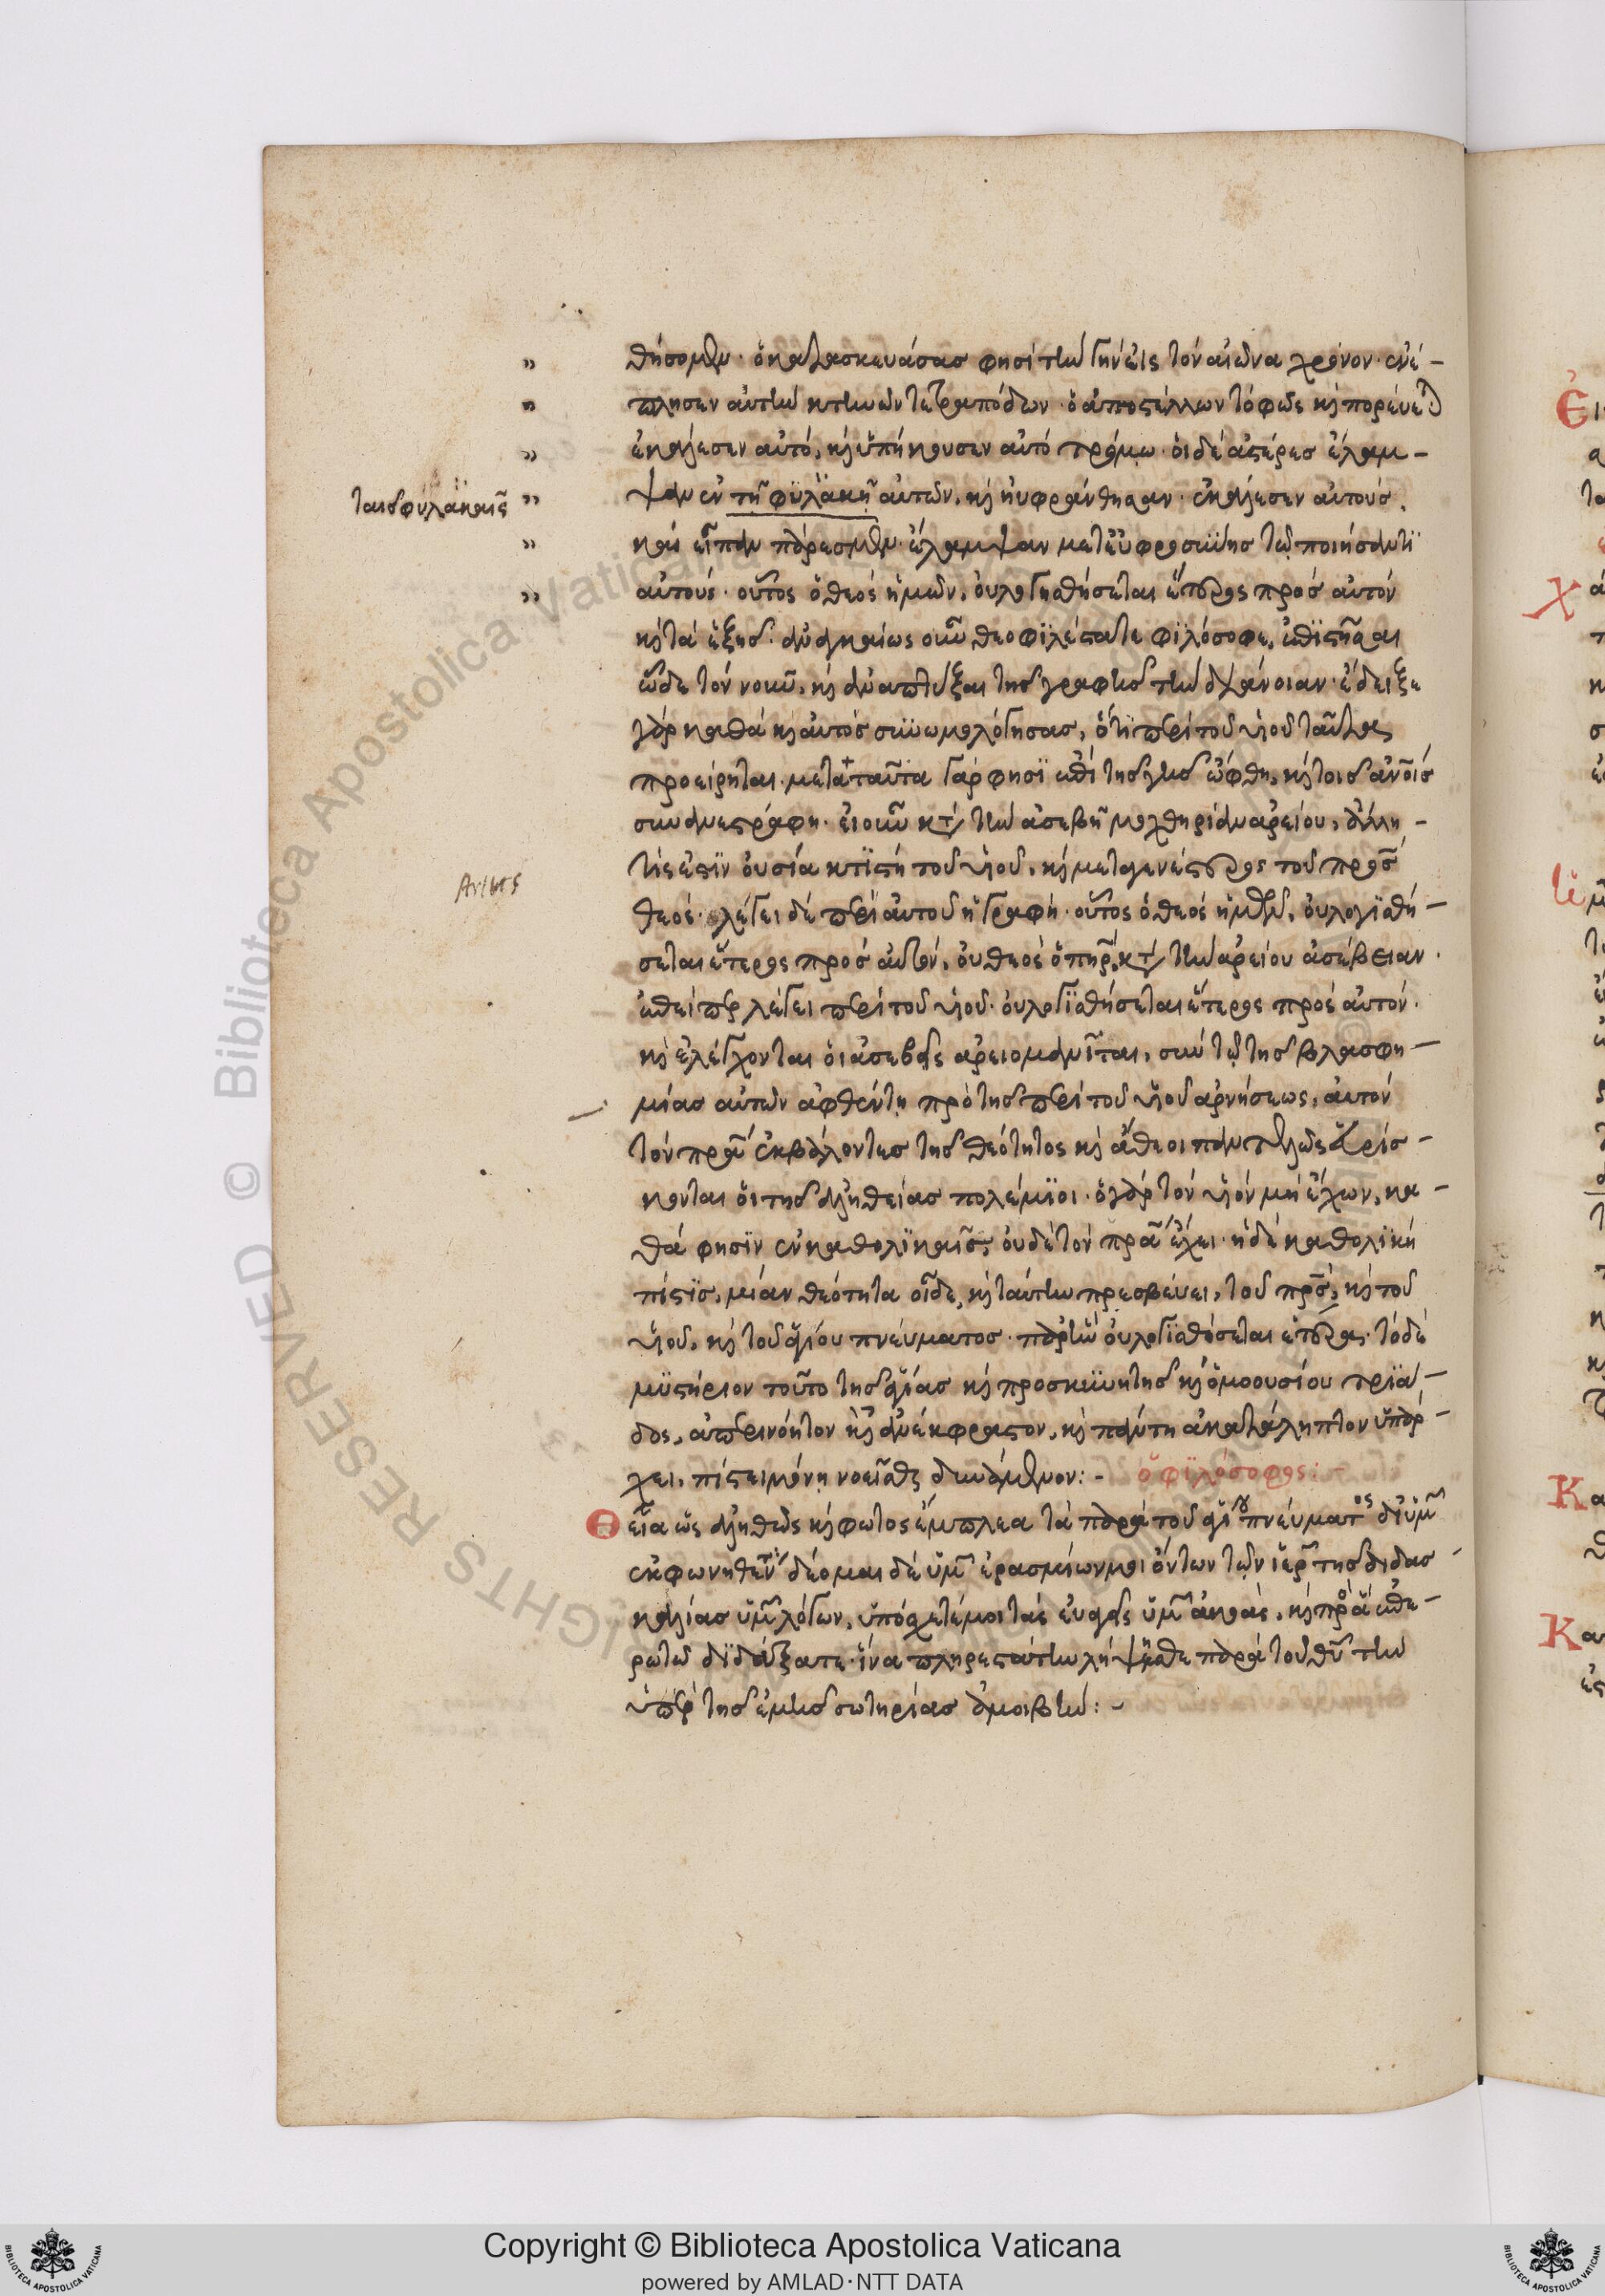 θήσομεν· ὁ κατασκευάσας φησί τὴν γῆν εἰς τὸν αἰῶνα χρόνον· ἐνέ-
πλησεν αὐτὴν κτηνῶν τετραπόδων· ὁ ἀποστέλλων τὸ φῶς καὶ πορεύεται
ἐκάλεσεν αὐτό, καὶ ὑπήκουσεν αὐτό τρόμῳ· οἱ δὲ ἀστέρες ἔλαμ-
ψαν ἐν τῇ φϋλακῇ αὐτῶν, καὶ ηὐφράνθησαν· ἐκάλεσεν αὐτούς,
ταῖς φυλακαῖς
καὶ εἶπαν πάρεσμεν· ἔλαμψαν μετ' εὐφροσύνης τῷ ποιήσαντϊ
αὐτούς· οὗτος ὁ θεός ἡμῶν, οὐ λογισθήσεται ἕτερος πρός αὐτόν
καὶ τὰ ἑξῆς· ἀναγκαίως οὖν θεοφϊλέστατε φϊλόσοφε, ἐπϊστῆσαι
ὧδε τὸν νοῦν, καὶ ἀναπτύξαι τῆς γραφῆς τὴν διάνοιαν· ἔδειξε
γὰρ καθά καὶ αὐτός συνωμολόγησας, ὅτϊ περὶ τοῦ υἱοῦ ταῦτα
προείρηται· μετὰ ταῦτα γάρ φησϊ ἐπὶ τῆς γῆς ὤφθη, καὶ τοῖς ἀνοις
συνανεστράφη· εἰ οὖν κατὰ τὴν ἀσεβῆ μοχθηρίαν ἀρείου, ἄλλη
τίς ἐστϊν οὐσία κτϊστή τοῦ υἱοῦ, καὶ μεταγενέστερος τοῦ προς
Arius
θεός· λέγει δὲ περϊ αὐτοῦ ἡ γραφή· οὗτος ὁ θεός ἡμῶν, οὐ λογϊσθή-
σεται ἕτερος πρός αὐτόν, οὐ θεός ὁ πηρ, κατὰ τὴν ἀρείου ἀσέβειαν·
ἐπείπερ λέγει περὶ τοῦ υἱοῦ· οὐ λογϊσθήσεται ἕτερος πρός αὐτόν·
καὶ ἐλέγχονται οἱ ἀσεβεῖς ἀρειομανῖται, σὺν τῷ τῆς βλασφη-
μίας αὐτῶν πρὸ τῆς περὶ τοῦ υἱοῦ ἀρνήσεως, αὐτόν
τὸν πρα ἐκβάλοντες τῆς θεότητος καὶ ἄθεοι παντελῶς εὑρίσ-
κονται οἱ τῆς ἀληθείας πολέμϊοι· ὁ γὰρ τὸν υἱόν μὴ ἔχων, κα-
θά φησϊν ἐν καθολϊκαῖς, οὐδὲ τὸν πρα ἔχει· ἡ δὲ καθολϊκή
πίστϊς, μίαν θεότητα οἶδε, καὶ ταύτην πρεσβεύει, τοῦ πρς, καὶ τοῦ
υἱοῦ, καὶ τοῦ ἁγίου πνεύματος· παρ' ἣν οὐ λογϊσθήσεται ἕτερος· τὸ δὲ
μϋστήριον τοῦτο τῆς ἁγίας καὶ προσκϋνητῆς καὶ ὁμοουσίου τρϊά-
δος, ἀπερινόητον καὶ ἀνέκφραστον, καὶ πάντη ἀκατάληπτον ὑπάρ-
χει, πίστει μόνῃ νοεῖσθαι δυνάμενον:- ὁ φϊλόσοφος:-
Θεῖα ὡς ἀληθῶς καὶ φωτός ἔμπλεα τὰ παρὰ τοῦ ἁγίου πνεύματος δι' ὑμ
ἐκφωνηθέν· δέομαι δὲ ὑμ ἐρασμίων μοι ὄντων τῶν ἱερ τῆς διδασ-
καλίας ὑμ λόγων, ὑπόσχετέ μοι τὰς εὐαγεῖς ὑμ ἀκοάς, καὶ πρὸς ἅ ἐπε-
ρωτῶ δϊδάξατε· ἵνα πληρεστάτην λήψησθε παρὰ τοῦ θῦ τὴν
ὑπὲρ τῆς ἐμῆς σωτηρίας ἀμοιβήν:-
Copyright © Biblioteca Apostolica Vaticana
powered by AMLAD·NTT DATA